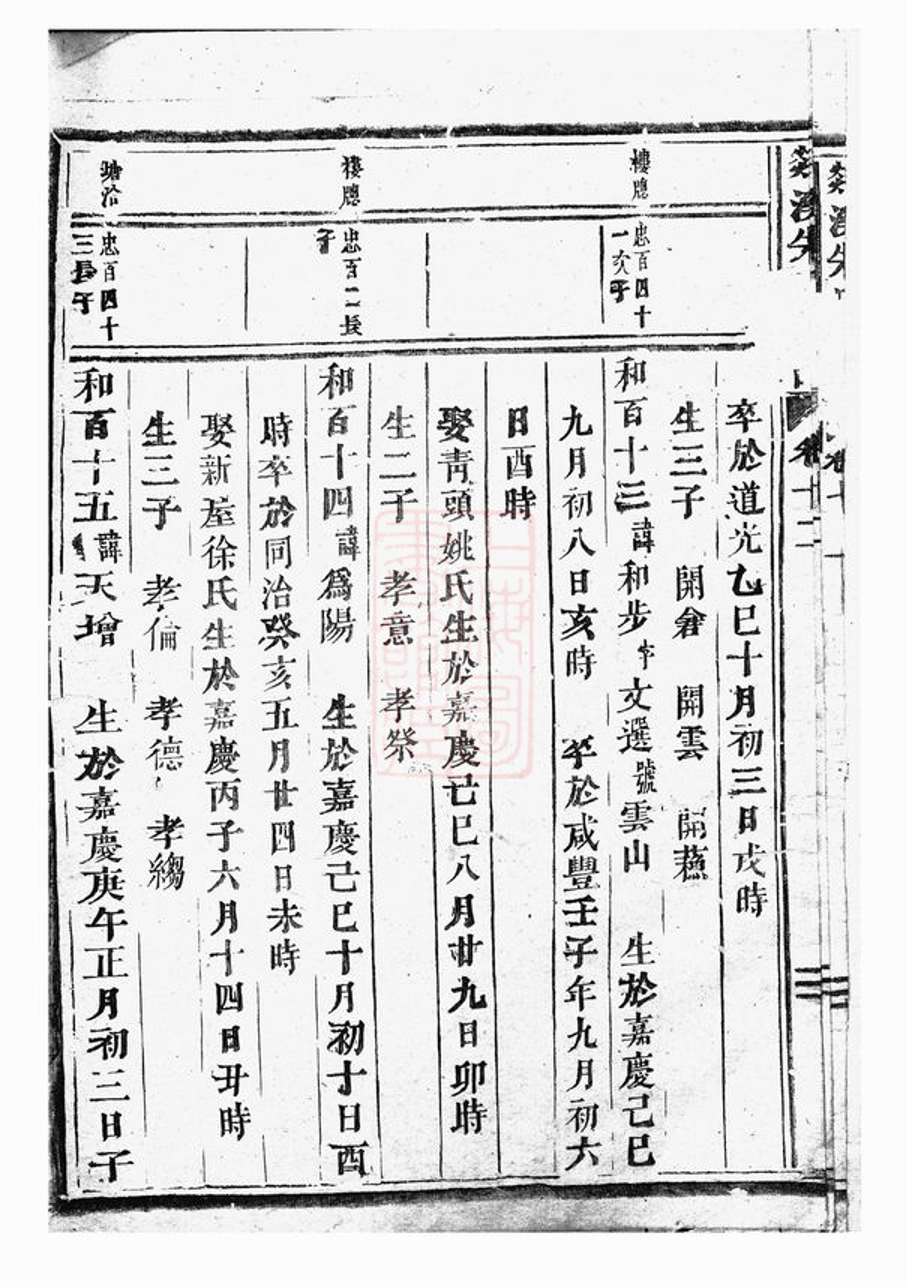 卷十二
卒於道光乙巳十月初三日戌時
生三子 開 開雲 開蘓
樓牕
忠百四十
一次子
和百十三諱和步字文選號雲山 生於嘉慶己巳
九月初八日亥時 卒於咸豐壬子年九月初六
日酉時
娶青頭姚氏生於嘉慶己巳八月廿九日卯時
生二子 孝意 孝祭
樓牕
忠百二長
子
和百十四諱為陽 生於嘉慶己巳十月初十日酉
時卒於同治癸亥五月廿四日未時
娶新屋徐氏生於嘉慶丙子六月十四日丑時
生三子 孝倫 孝德 孝縐
塘沿
忠百四十
三長子
和百十五諱天增 生於嘉慶庚午正月初三日子